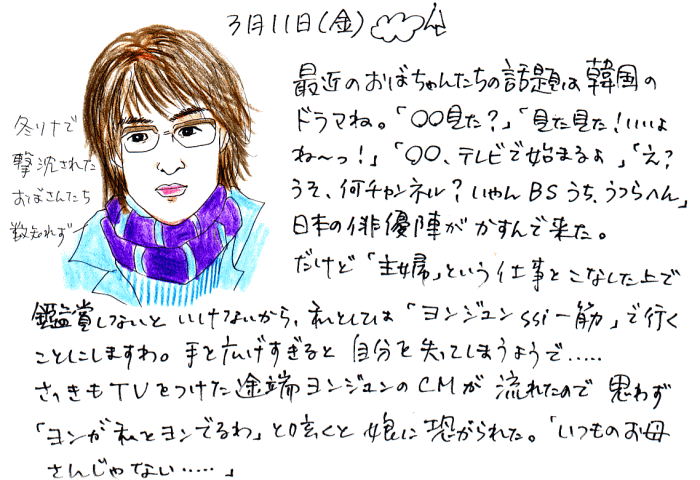 3月11日(金)
最近のおばちゃんたちの話題は韓国の
ドラマね。「〇〇見た?」「見た見た!いいよ
ね〜っ!」「〇〇、テレビで始まるよ」「え?
うそ、何チャンネル?いやん BSうち、うつらへん」
日本の俳優陣がかすんで来た。
だけど「主婦」という仕事をこなした上で
鑑賞しないといけないから、私としては「ヨンジュンssi一筋」で行く
ことにしますわ。手を広げすぎると自分を失ってしまうようで.....
さっきもTVをつけた途端ヨンジュンのCMが流れたので思わず
「ヨンが私をヨンでるわ」と呟くと娘に恐がられた。「いつものお母
さんじゃない.....」
冬ソナで
撃沈された
おばさんたち
数知れず